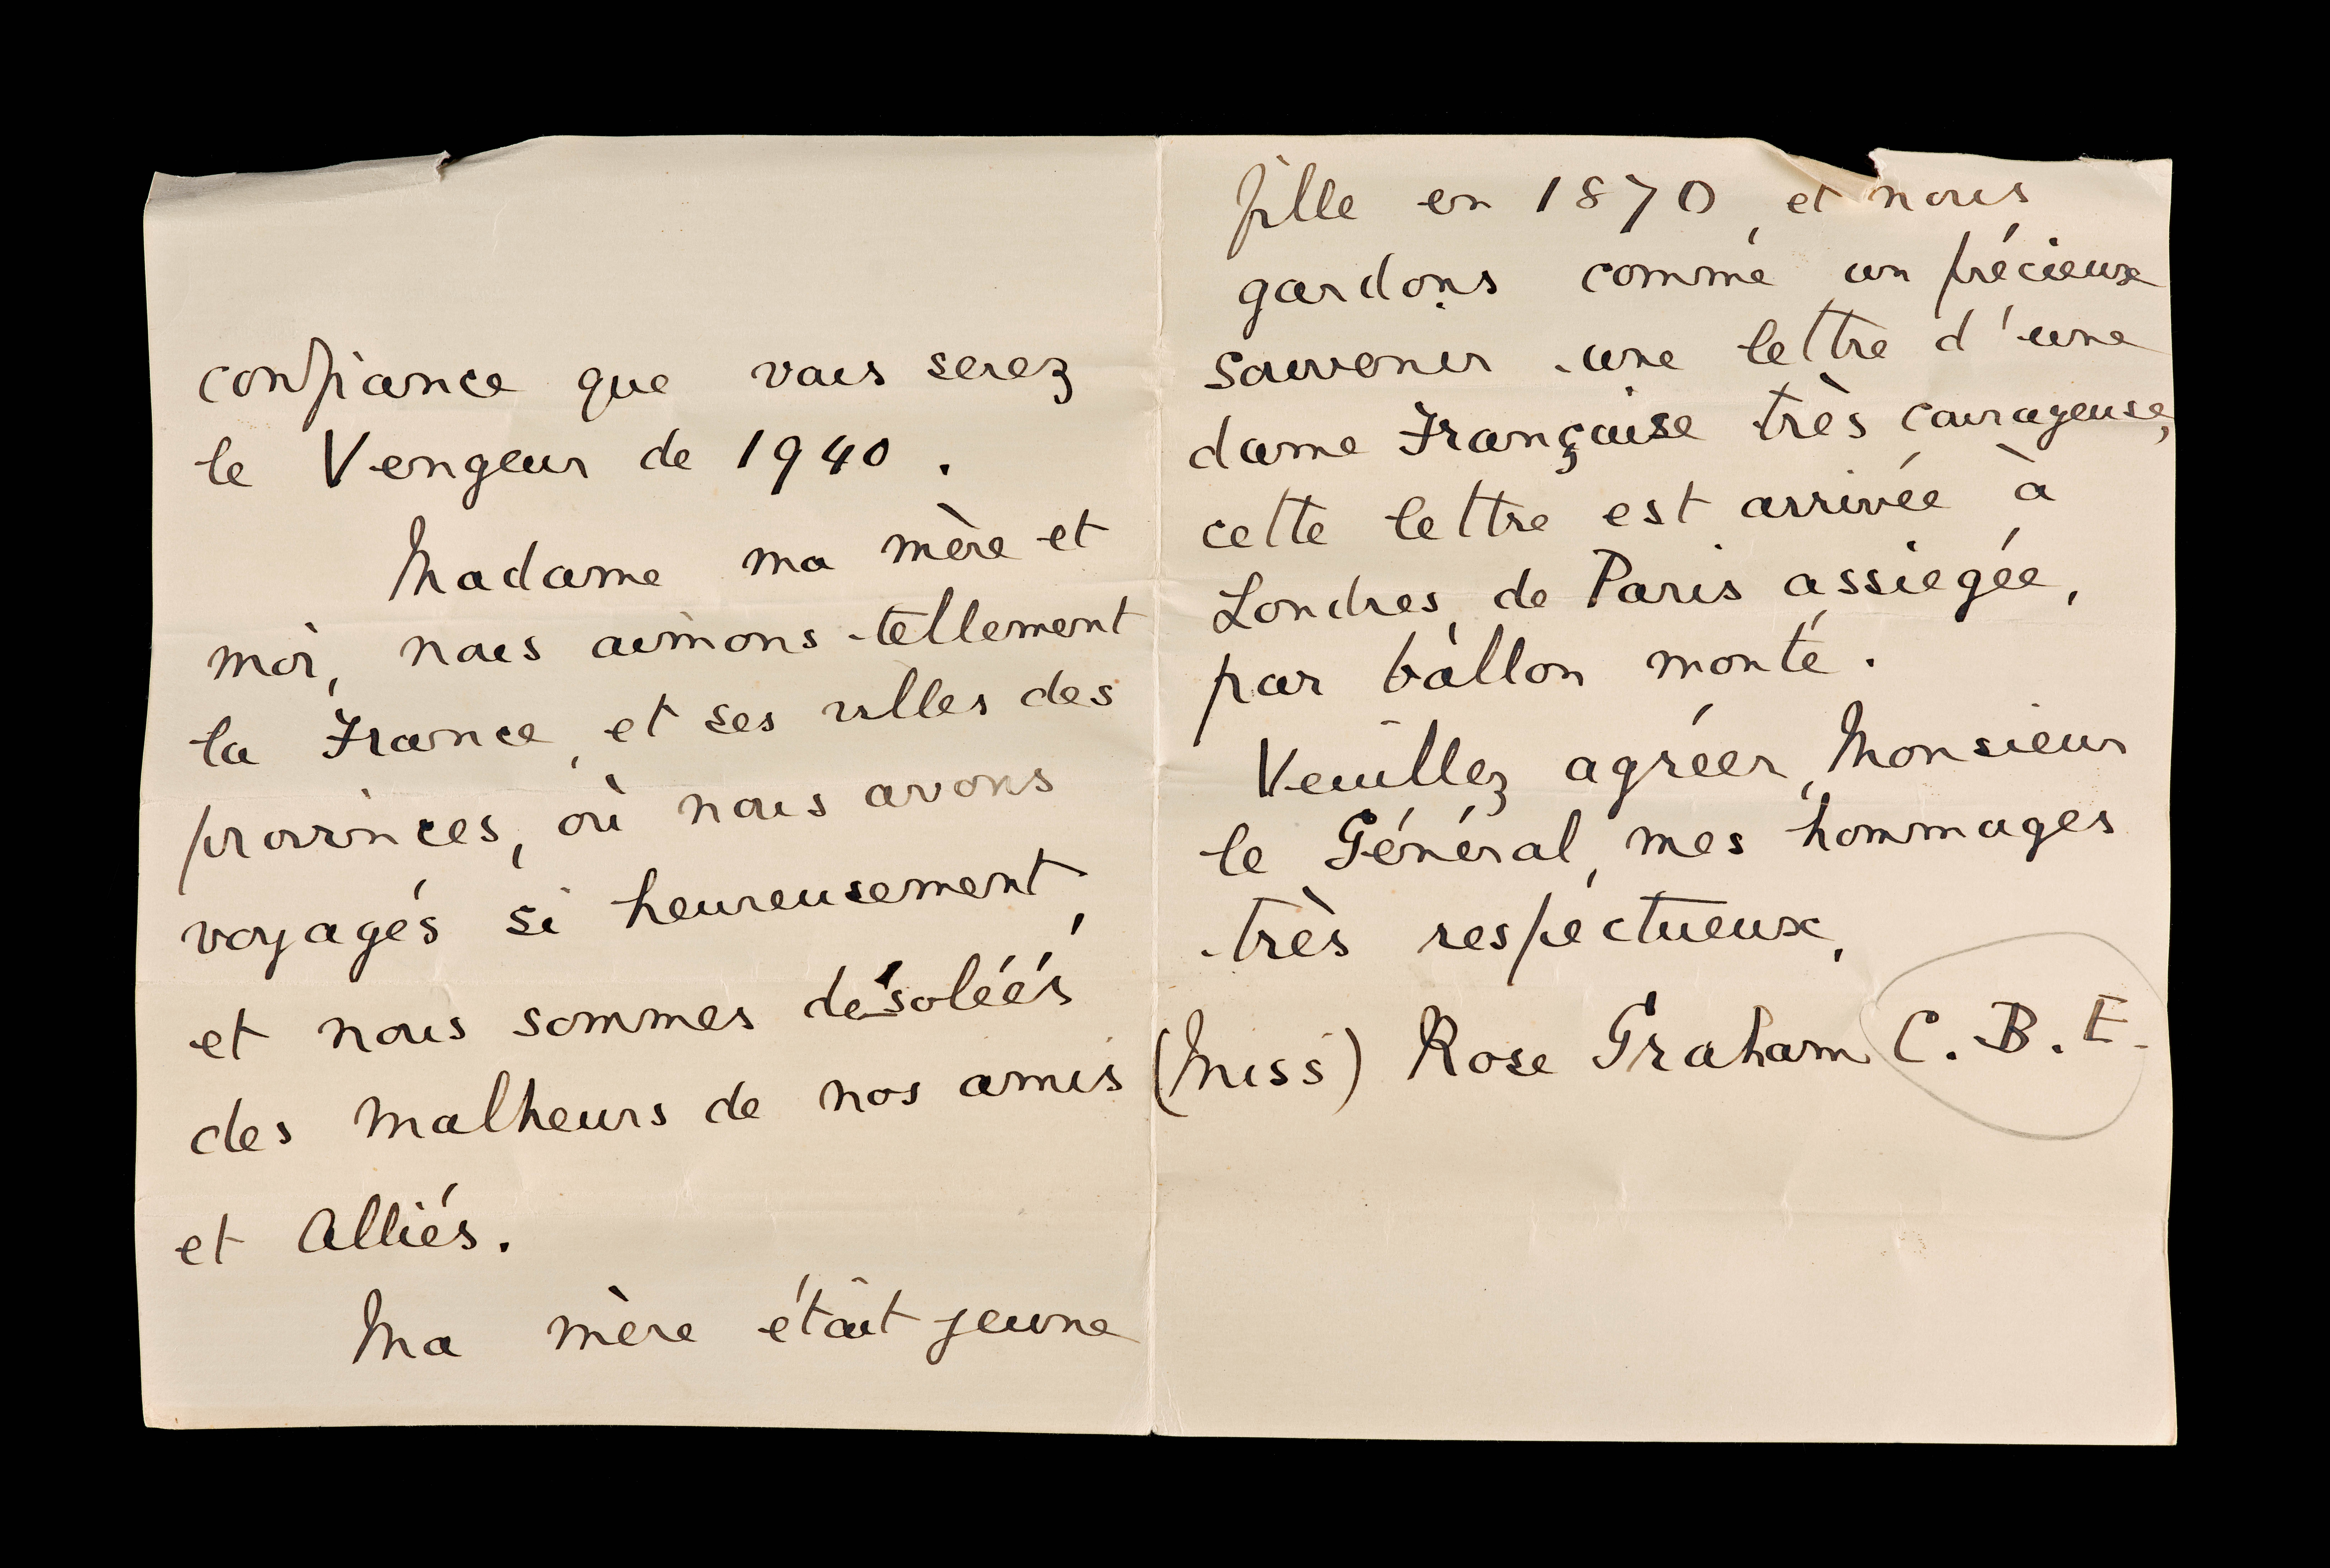 confiance que vous serez
le Vengeur de 1940.
Madame ma mère et
moi, nous aimons tellement
la France, et ses villes des
provinces, où nous avons
voyagés si heureusement,
et nous sommes désoléés
des malheurs de nos amis
et Alliés.
Ma mère était jeune
fille en 1870, et nous
gardons comme un précieux
souvenir une lettre d'une
dame Française très courageuse,
cette lettre est arrivée à
Londres, de Paris assiegée,
par ballon monté.
Veuillez agréer, Monsieur
le Général, mes hommages
très respectueux,
(Miss) Rose Graham C.B.E.